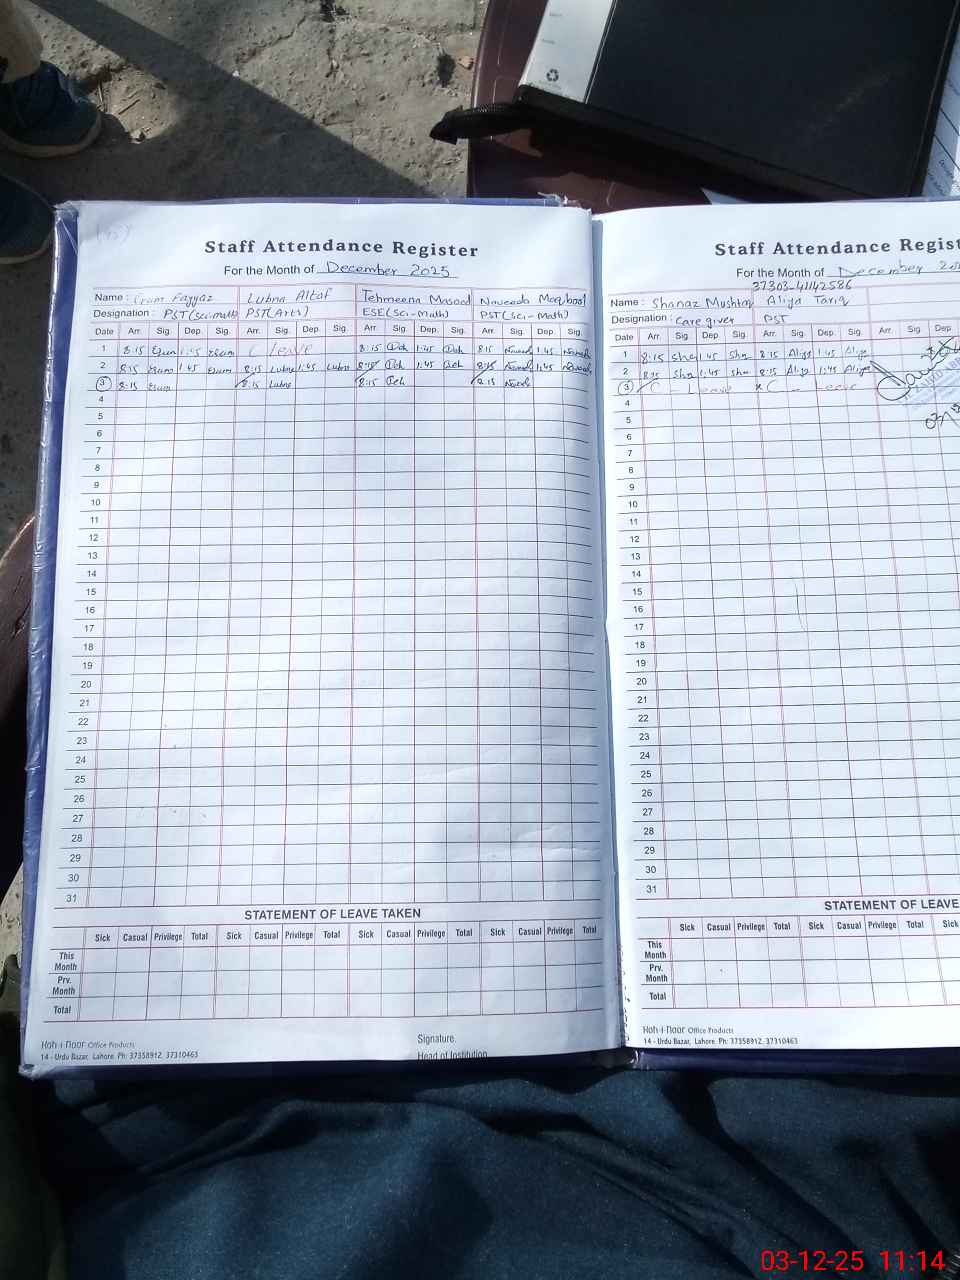 Staff Attendance Register
For the Month of December 2025
Name : Irum Fayyaz Lubna Altaf Tehmeena Masood Naveeda Maqbool
Designation : PST(sci-math) PST(Arts) ESE(sci-math) PST(sci-math)
Date Arr. Sig. Dep. Sig. Arr. Sig. Dep. Sig. Arr. Sig. Dep. Sig. Arr. Sig. Dep. Sig.
1 8:15 Irum 1:45 Irum C Leave 8:15 1:45 8:15 Naveeda 1:45 Naveeda
2 8:15 Irum 1:45 Irum 8:15 Lubna 1:45 Lubna 8:15 1:45 8:15 Naveeda 1:45 Naveeda
3 8:15 Irum 8:15 Lubna 8:15 8:15 Naveeda
4
5
6
7
8
9
10
11
12
13
14
15
16
17
18
19
20
21
22
23
24
25
26
27
28
29
30
31
STATEMENT OF LEAVE TAKEN
Sick Casual Privilege Total Sick Casual Privilege Total Sick Casual Privilege Total Sick Casual Privilege Total
This Month
Prv. Month
Total
Signature.
Head of Institution
Koh-i-Noor Office Products
14 - Urdu Bazar, Lahore. Ph: 37358912, 37310463
Staff Attendance Regist
For the Month of December 20
37303-41142586
Name : Shanaz Mushtaq Aliya Tariq
Designation : Care giver PST
Date Arr. Sig Dep. Sig. Arr. Sig. Dep. Sig. Arr. Sig. Dep.
1 8:15 Sha 1:45 Sha 8:15 Aliya 1:45 Aliya
2 8:15 Sha 1:45 Sha 8:15 Aliya 1:45 Aliya
3 C - Leave C - Leave
4
5
6
7
8
9
10
11
12
13
14
15
16
17
18
19
20
21
22
23
24
25
26
27
28
29
30
31
STATEMENT OF LEAVE
Sick Casual Privilege Total Sick Casual Privilege Total Sick
This Month
Prv. Month
Total
Koh-i-Noor Office Products
14 - Urdu Bazar, Lahore. Ph: 37358912, 37310463
03-12-25 11:14